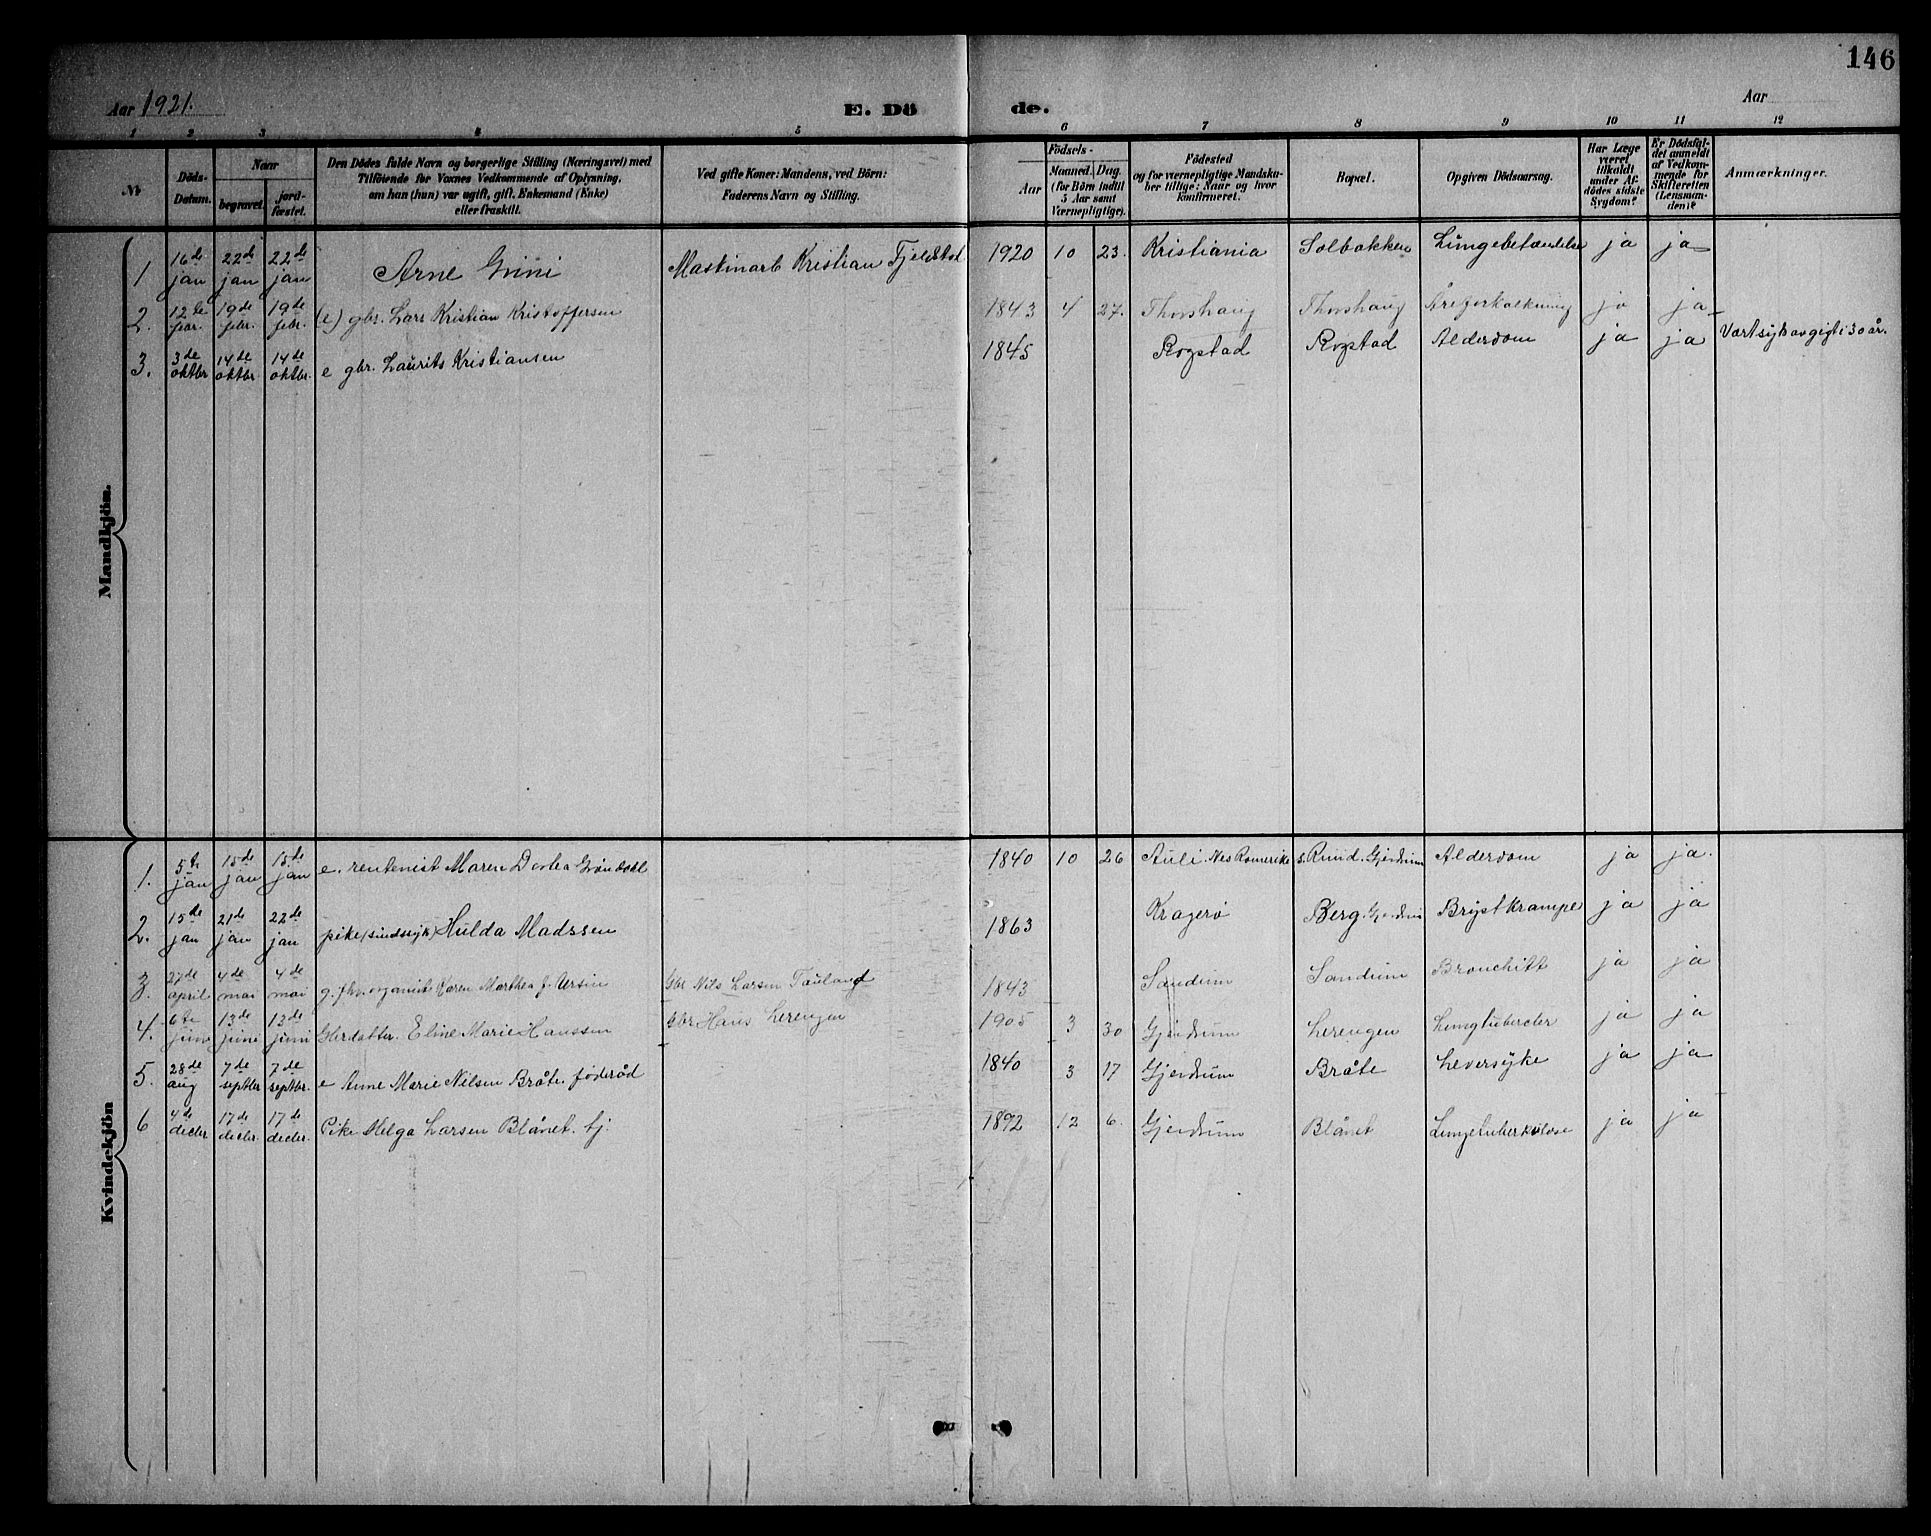 146
Aar 1921.
E. Döde.
Aar
1 2 3 4 5 6 7 8 9 10 11 12
No
Döds-Datum.
Naar
begravet.
jordfæstet.
Den Dödes fulde Navn og borgerlige Stilling (Næringsvei) med
Tilföiende for Voxnes Vedkommende af Oplysning,
om han (hun) var ugift, gift, Enkemand (Enke)
eller fraskilt.
Ved gifte Koner: Mandens, ved Börn:
Faderens Navn og Stilling.
Födsels-
Aar
Maaned Dag
(for Börn indtil
5 Aar samt
Værnepligtige).
Födested
og for værnepligtige Mandsku-
ber tillige: Naar og hvor
konfirmeret.
Bopæl.
Opgiven Dödsaarsag.
Har Læge
været
tilkaldt
under Af-
dödes sidste
Sygdom?
Er Dödsfal-
det anmeldt
af Vedkom-
mende for
Skifteretten
(Lensman-
den)?
Anmærkninger.
Mandkjön.
1 16de jan 22de jan 22de jan Arne Grini Maskinarb Kristian Fjeldstad 1920 10 23. Kristiania Solbakken Lungebetændelse ja ja
2. 12te febr. 19de febr. 19de febr. (e) gbr. Lars Kristian Kristoffersen 1843 4 27. Thorshaug Thorshaug Åreforkalkning ja ja
3. 3de oktbr 14de oktbr 14de oktbr. e gbr. Laurits Kristiansen 1845 Rogstad Rogstad Alderdom ja ja Vært syk av gigt i 30 år.
Kvindekjön
1. 5te jan 15de jan 15de jan e. rentenist Maren Dortea Gröndahl 1840 10 26 Auli. Nes Romerike s. Ruud. Gjerdrum Alderdom ja ja.
2. 15de jan 21de jan 22de jan pike (sindssyk) Hulda Madssen 1863 Kragerø Berg. Gjerdrum Brystkrampe ja ja
3. 27de april 4de mai 4de mai g. fhv. organist Karen Marthea J. Ursin Gbr Nils Larsen 1843 Sandum Sandum Bronchitt ja ja
4. 6te juni 13de juni 13de juni Gbrdatter. Eline Marie Hanssen Gbr Hans Lerengen 1905 3 30 Gjerdrum Lerengen Lungtubercler ja ja
5. 28de aug 7de septbr 7de septbr. e Anne Marie Nilsen Bråte. föderåd 1840 3 17 Gjerdrum Bråte Leversyke ja ja
6 4de decbr 17de decbr. 17de decbr. Pike Helga Larsen Blånet. tj. 1892 12 6. Gjerdrum Blånet Lungetuberkulose ja ja